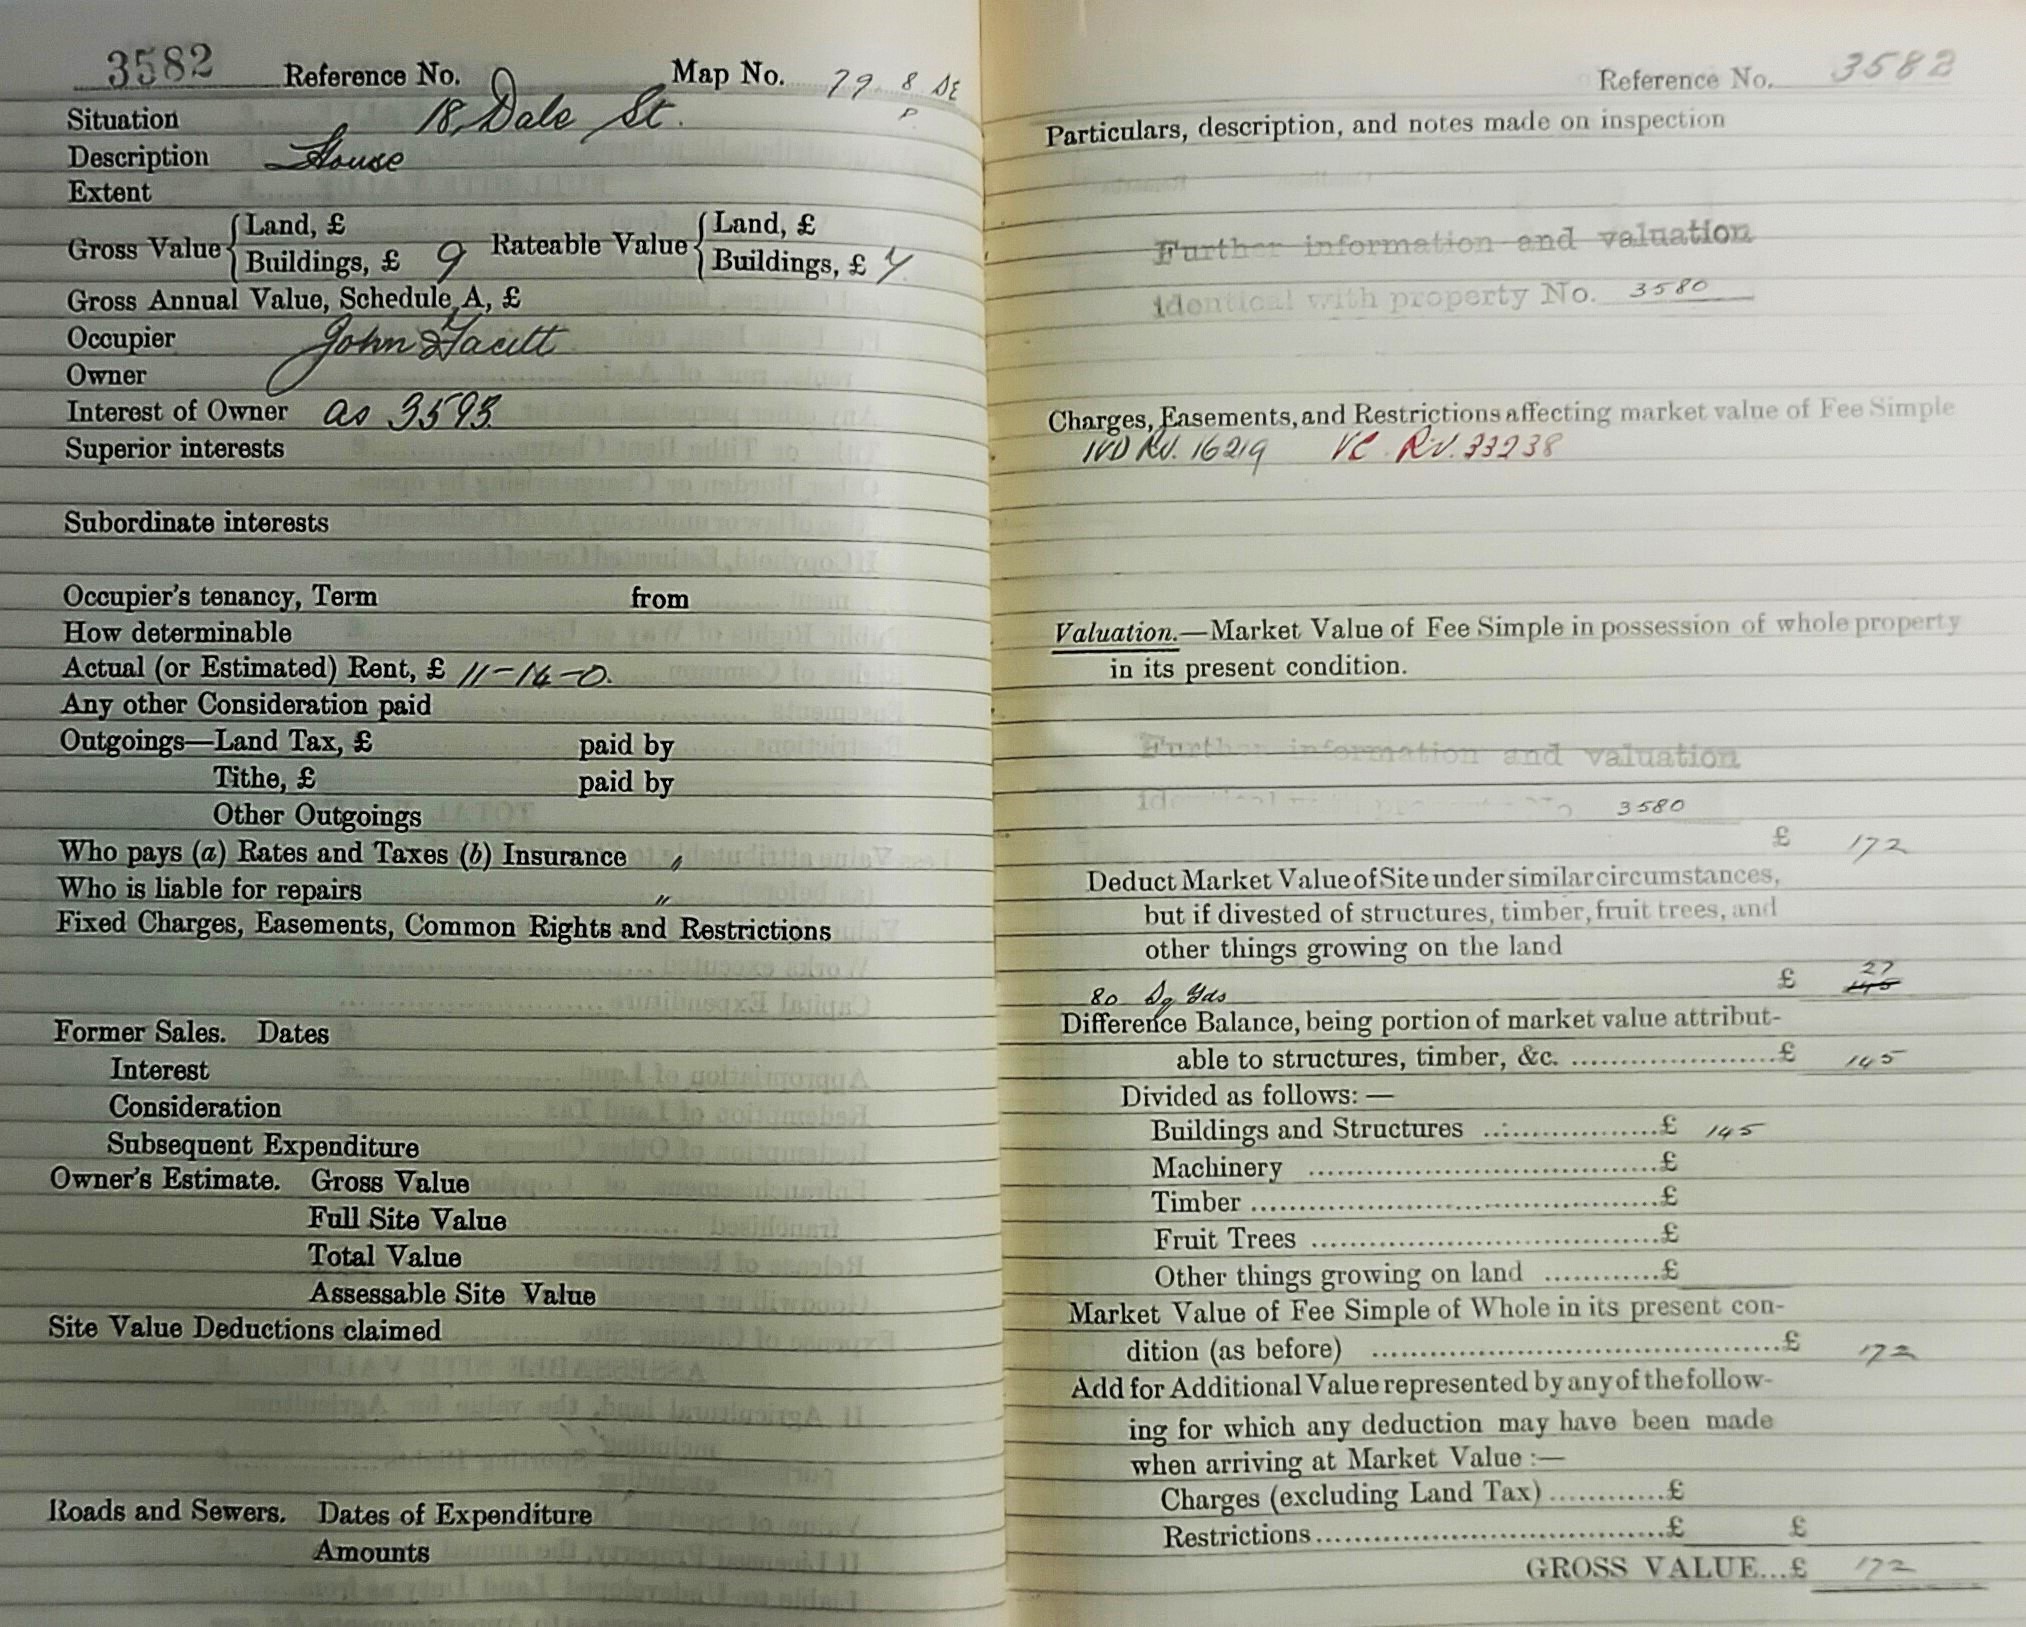 3582 Reference No. Map No. 79 8 DE
P
Situation 18, Dale St.
Description House
Extent
Gross Value { Land, £ Rateable Value { Land, £
Buildings, £ 9 Buildings, £ 7
Gross Annual Value, Schedule A, £
Occupier John
Owner
Interest of Owner as 3593.
Superior interests
Subordinate interests
Occupier's tenancy, Term from
How determinable
Actual (or Estimated) Rent, £ 11-14-0.
Any other Consideration paid
Outgoings—Land Tax, £ paid by
Tithe, £ paid by
Other Outgoings
Who pays (a) Rates and Taxes (b) Insurance "
Who is liable for repairs "
Fixed Charges, Easements, Common Rights and Restrictions
Former Sales. Dates
Interest
Consideration
Subsequent Expenditure
Owner's Estimate. Gross Value
Full Site Value
Total Value
Assessable Site Value
Site Value Deductions claimed
Roads and Sewers. Dates of Expenditure
Amounts
Reference No. 3582
Particulars, description, and notes made on inspection
Further information and valuation
identical with property No. 3580
Charges, Easements, and Restrictions affecting market value of Fee Simple
IVD RV. 16219 VC. RV. 33238
Valuation.—Market Value of Fee Simple in possession of whole property
in its present condition.
Further information and valuation
identical with property No 3580
£ 172
Deduct Market Value of Site under similar circumstances,
but if divested of structures, timber, fruit trees, and
other things growing on the land
27
80 Sq Yds £ 145
Difference Balance, being portion of market value attribut-
able to structures, timber, &c. ......................£ 145
Divided as follows: —
Buildings and Structures ...................£ 145
Machinery ....................................£
Timber ..........................................£
Fruit Trees ....................................£
Other things growing on land ............£
Market Value of Fee Simple of Whole in its present con-
dition (as before) ...........................................£ 172
Add for Additional Value represented by any of the follow-
ing for which any deduction may have been made
when arriving at Market Value :—
Charges (excluding Land Tax) ............£
Restrictions ....................................£ £
GROSS VALUE...£ 172